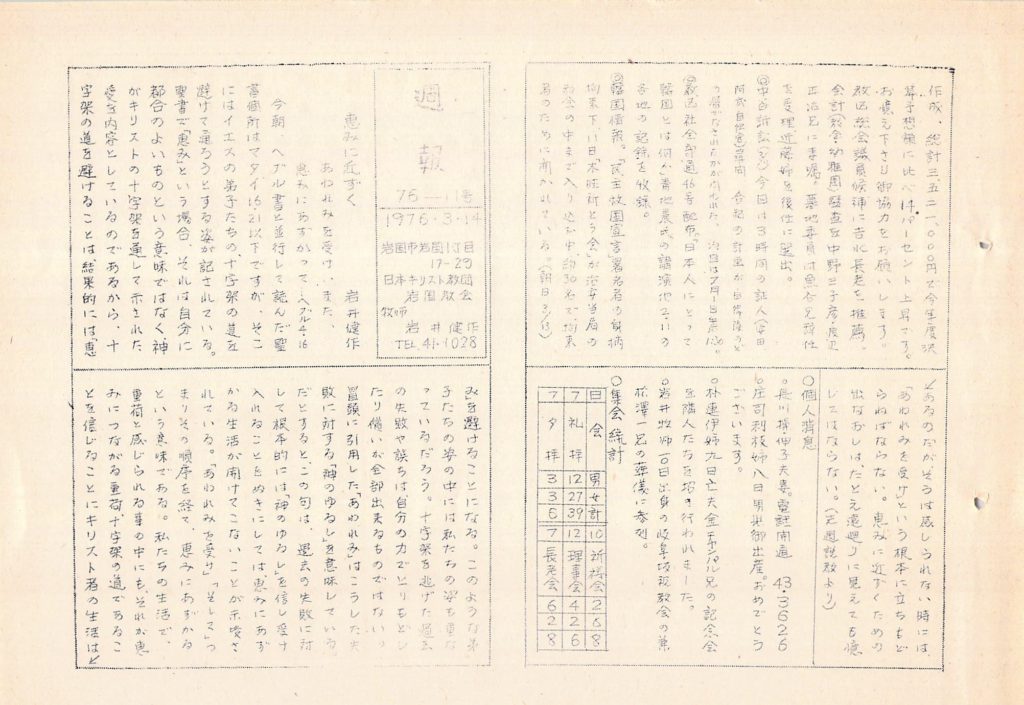 週報
76-11号
1976・3・14
岩国市岩国1丁目
17-29
日本キリスト教団
岩国教会
牧師
岩井健作
TEL 41-1028
恵みに近ずく
岩井健作
あわれみを受け、また、
恵みにあずかって、ヘブル4・16
今朝、ヘブル書と並行して読んだ聖
書個所はマタイ16・21以下ですが、そこ
にはイエスの弟子たちの、十字架の道を
避けて通ろうとする姿が記されている。
聖書で「恵み」という場合、それは自分に
都合のよいものという意味ではなく神
がキリストの十字架を通して示された
愛を内容としているのであるから、十
字架の道を避けることは、結果的には「恵
み」を避けることになる。このような弟
子たちの姿の中には私たちの姿も重な
っているだろう。十字架を逃げた過去
の失敗や誤ちは、自分の力でとりもどし
たり償いが全部出来るものではない。
冒頭に引用した「あわれみ」はこうした失
敗に対する「神のゆるし」を意味している
だとすると、この句は、過去の失敗に対
して根本的には「神のゆるし」を信じ受け
入れることをぬきにしては恵みにあず
かる生活が開けてこないことが示唆さ
れている。「あわれみを受け」「そして」つ
まりその順序を経て、恵みにあずかる
という意味である。私たちの生活で、
重荷と感じられる事の中にも、それが恵
みにつながる重荷、十字架の道であるこ
とを信じることにキリスト者の生活は
作成。総計三、五二一、〇〇〇円で今年度決
算予想額に比べ14パーセント上昇です。
お憶え下さり御協力をお願いします。
教区総会議員候補に吉永長老を推薦。
会計(教会幼稚園)監査を中野
正治兄に委嘱。墓地委員は魚谷兄辞任
を受理近藤姉を後任に選出。
今日は3時間の証人
教区社会
46号配布。「日本人にとって
韓国とは何か」青地晨氏の講演
の記録を收録。
韓国情報。「民主救国宣言」署名者の
約30名で、拘束
者のために開かれている。(朝日3/13)
あるのだがそうは感じられない時には、
「あわれみを受け」という根本に立ちもど
らねばならない。恵みに近ずくための
出なおしは、たとえ遠廻りに見えても憶
してはならない。(先週説教より)
○個人消息
夫妻。電話開通 43・3626
庄司利枝姉八日男児御出産。おめでとう
ございます。
姉九日亡夫金
兄の記念会
を隣人たちを招き行われました。
岩井牧師一〇日出身の岐阜坂祝教会の兼
松澤一兄の葬儀に参列。
○集会統計
日 会 男 女 計
7 礼拝 12 27 39
7 夕拝 3 3 6
10 祈祷会 2 6 8
12 理事会 4 2 6
7 長老会 6 2 8